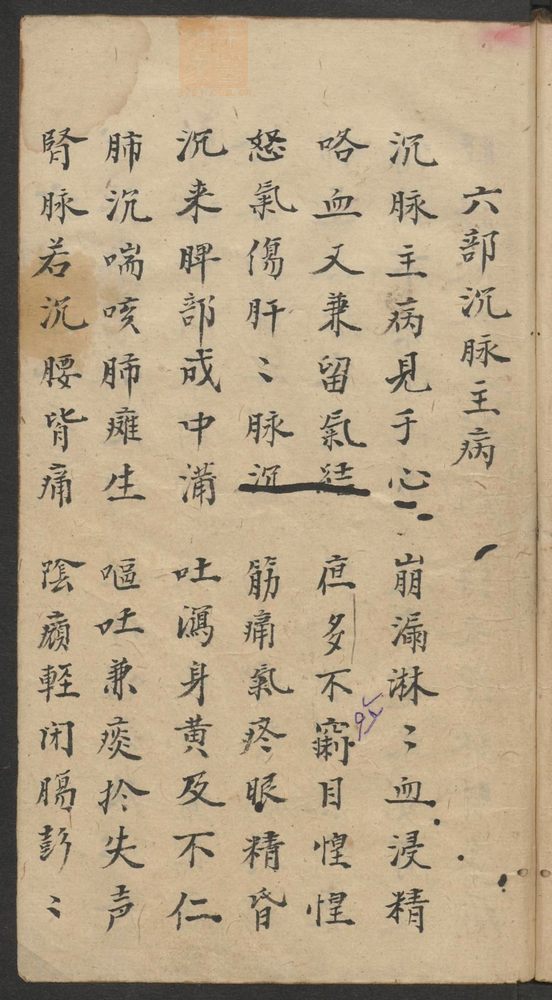 六部沉脉主病
沉脉主病見于心 崩漏淋〻血浸精
咯血又兼留氣 㐁多不 目惶惶
怒氣傷肝〻脉沉 筋痛氣疼眼精昏
沉来脾部成中满 吐瀉身黄及不仁
肺沉喘咳肺癰生 嘔吐兼痰於失声
腎脉若沉腰背痛 陰㿉軽闭腸彭〻
95